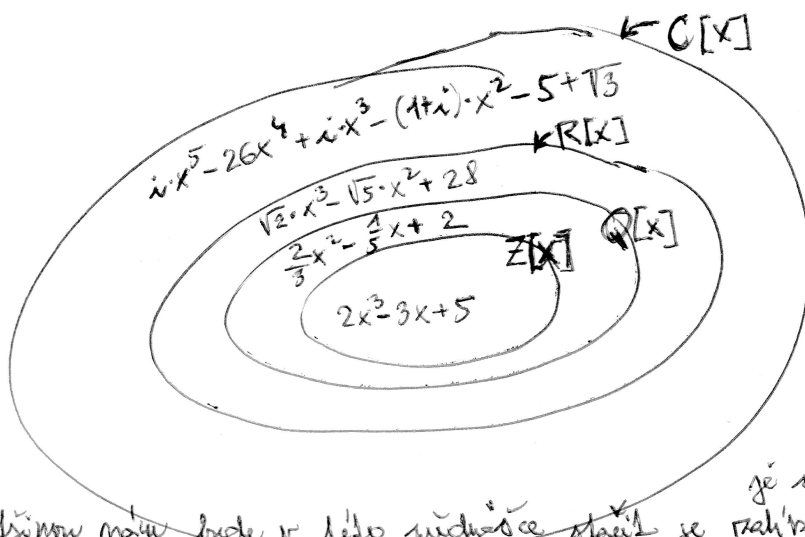 ← C[x]
i·x⁵ - 26x⁴ + i·x³ - (1+i)·x² - 5 + √3
R[x]
√2·x³ - √5·x² + 28
2/3 x² - 1/5 x + 2
Q[x]
Z[x]
2x³ - 3x + 5
je
nám bude v této se